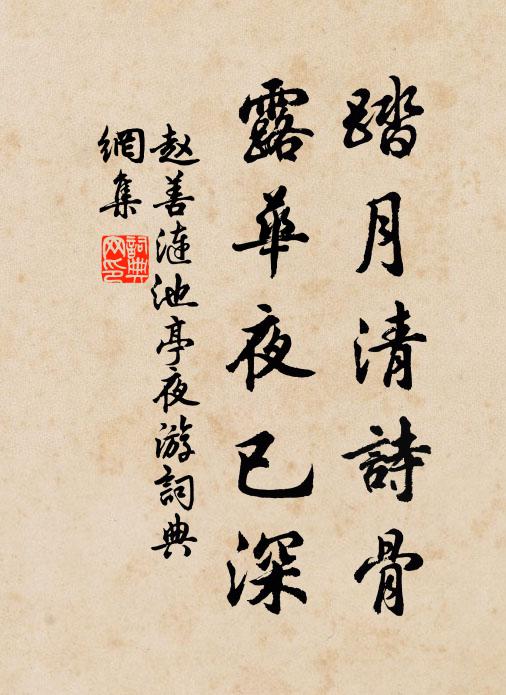 踏月清詩骨
露華夜已深
赵善漣池亭夜游詞典
網集
詞典
网印